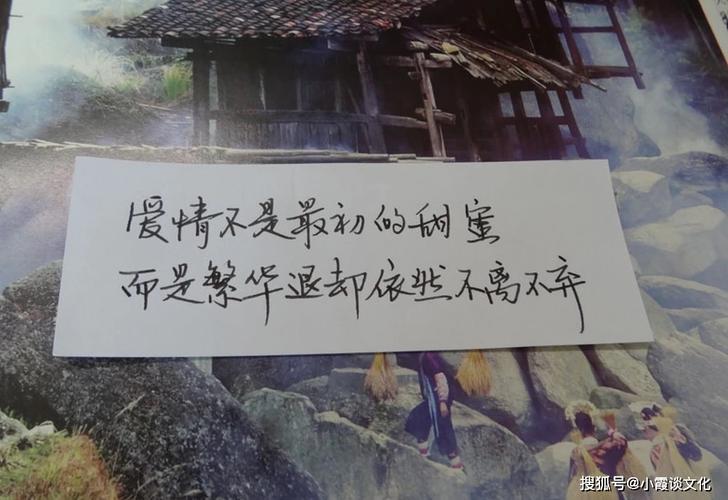 爱情不是最初的甜蜜
而是繁华退却依然不离不弃
搜狐号@小霞谈文化